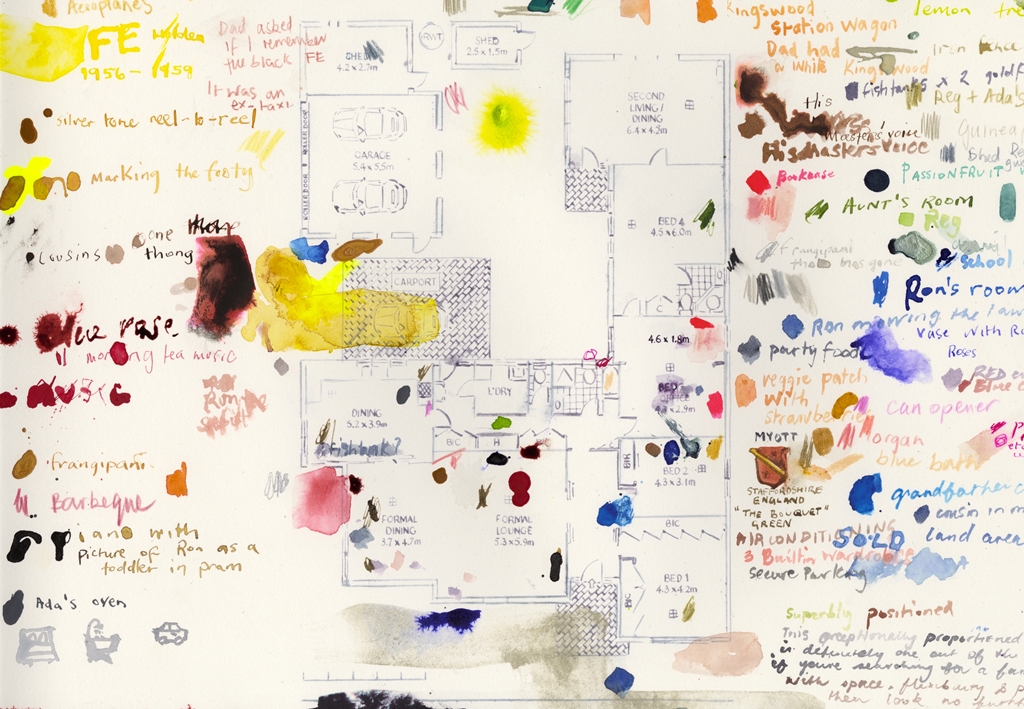 Aeroplanes
FE Holden
1956 - 1959
Dad asked
if I remember
the black FE
It was an
ex-taxi
silver tone reel-to-reel
marking the footy
cousins
one
thong
Vee vase
morning tea music
music
frangipani
Barbeque
piano with
picture of Ron as a
toddler in pram
Ada's oven
SHED
4.2 x 2.7m
RWT
SHED
2.5 x 1.5m
ROLLER DOOR
ROLLER DOOR
GARAGE
5.4 x 5.5m
CARPORT
SECOND
LIVING/
DINING
6.4 x 4.3m
BED 4
4.5 x 6.0m
4.6 x 1.8m
L'DRY
DINING
5.2 x 3.9m
fishtank?
B/C
H
BED 2
4.3 x 3.1m
BIR
FORMAL
DINING
3.7 x 4.7m
FORMAL
LOUNGE
5.3 x 5.9m
BIC
BED 1
4.3 x 4.2m
BIC
Kingswood
Station Wagon
Dad had
a White Kingswood
lemon tree
iron fence
fishtanks x 2 goldf
Reg + Ada's
His
Master's voice
His Masters Voice
Guinea
Shed
Bookcase
PASSIONFRUIT
AUNT'S ROOM
Reg
frangipani
school
Ron's room
Ron mowing the law
vase with Ro
Roses
party food
veggie patch
with
strawberries
RED
can opener
MYOTT
organ
blue bath
STAFFORDSHIRE
ENGLAND
"THE BOUQUET"
GREEN
grandfather c
cousin in m
AIR CONDITIONING
SOLD
land area
3 Built in wardrobes
Secure Parking
Superbly positioned
This exceptionally proportioned
is definitely one out of the
if you're searching for a fam
with space, flexibility & p
then look no furth